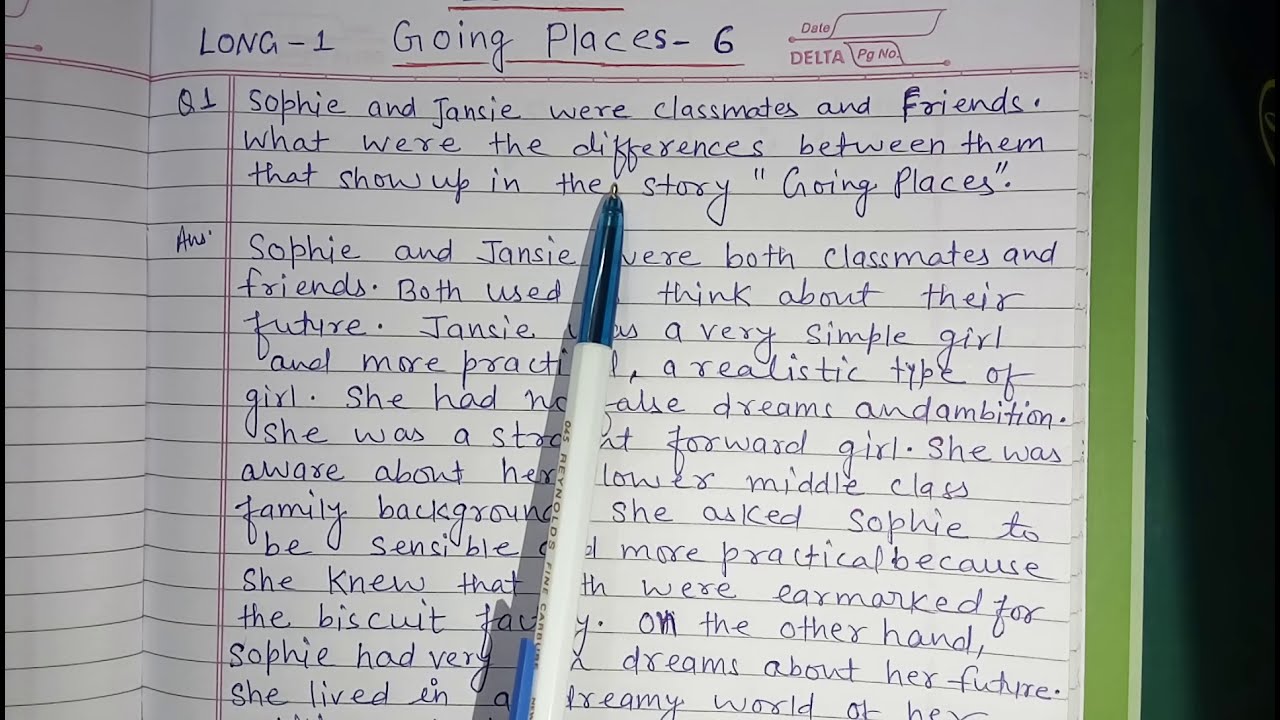 LONG-1 Going Places- 6
Date
DELTA Pg No.
Q1 Sophie and Jansie were classmates and Friends.
What were the differences between them
that show up in the story " Going Places".
Ans. Sophie and Jansie were both classmates and
friends. Both used think about their
future. Jansie a very simple girl
and more a realistic type of
girl. She had dreams and ambition.
She was a forward girl. She was
aware about her lower middle class
family background She asked Sophie to
be sensible more practical because
She knew that were earmarked for
the biscuit. On the other hand,
Sophie had very dreams about her future.
She lived in a dreamy world of her
045 REYNOLDS FINE CARBURE